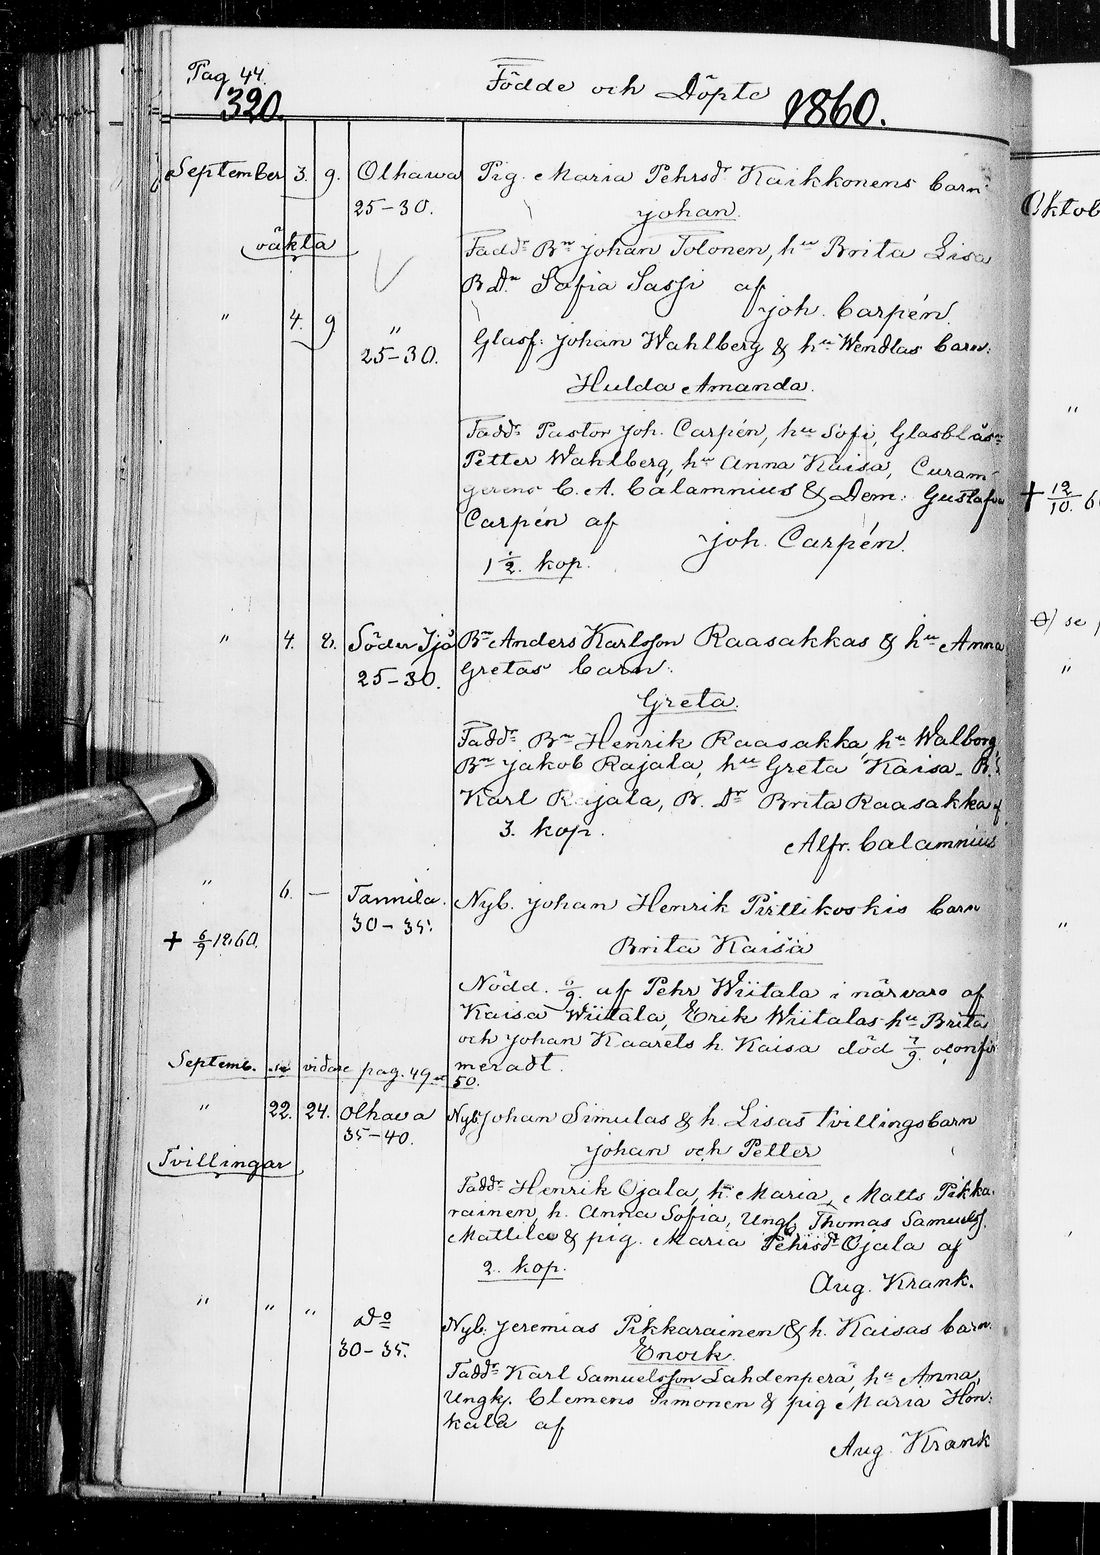 Pag 44.
320.
Födde och Döpte 1860.
September 3. 9. Olhawa Pig. Maria Pehrsdr Kaikkonens barn
25-30. Johan.
oäkta Faddr Bn Johan Tolonen, hu Brita Lisa
B Dn Sofia Sassi af
Joh. Carpén.
" 4. 9 " Glasf: Johan Wahlberg & hu Wendlas barn:
25-30. Hulda Amanda.
Faddr Pastor Joh. Carpén, hu Sofi, Glasblåsn
Petter Wahlberg, hu Anna Kaisa, Curam
gerens C. A. Calamnius & Dem: Gustafva
Carpén af Joh. Carpén.
1 1/2. kop.
" 4. 8. Söder Ijå Bn Anders Karlsson Raasakkas & hu Anna
25-30. Gretas barn:
Greta.
Faddr Bn Henrik Raasakka, hu Walborg,
Bn Jakob Rajala, hu Greta Kaisa, B.S
Karl Rajala, B. Dr Brita Raasakka af
3. kop.
Alfr. Calamnius
" 6. — Tannila. Nyb. Johan Henrik Pirttikoskis barn
30-35.
+ 6/9 1860. Brita Kaisa
Nödd. 6/9. af Pehr Wiitala i närvaro af
Kaisa Wiitala, Erik Wiitalas hu Brita
och Johan Kaarets h. Kaisa död 7/9. oconfir
meradt.
Septemb. se vidare pag. 49 och 50.
" 22. 24. Olhava Nyb. Johan Simulas & h. Lisas tvillingsbarn
35-40. Johan och Petter
Tvillingar
Faddr Henrik Ojala, h. Maria, Matts Pikka
rainen, h. Anna Sofia, Ungk. Thomas Samuelss.
Mattila & pig. Maria Pehrsdr Ojala af
2. kop.
Aug. Krank.
" " " Do Nyb: Jeremias Pikkarainen & h. Kaisas barn:
30-35. Enock.
Faddr Karl Samuelsson Lahdenperä, hu Anna,
Ungk. Clemens Timonen & pig Maria Hon:
kala af
Aug. Krank
Oktob
"
+ 12/10. 6
se
"
"